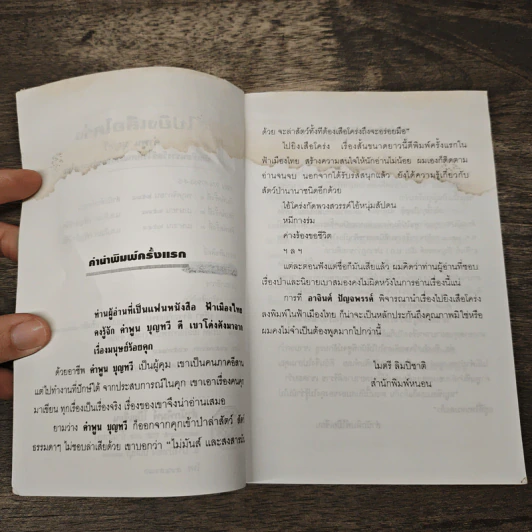 คำนำพิมพ์ครั้งแรก
ท่านผู้อ่านที่เป็นแฟนหนังสือ ฟ้าเมืองไทย
คงรู้จัก คำพูน บุญทวี ดี เขาโด่งดังมาจาก
เรื่องมนุษย์ร้อยคุก
ด้วยอาชีพ คำพูน บุญทวี เป็นผู้คุม เขาเป็นคนภาคอีสาน
แต่ไปทำงานที่ปักษ์ใต้ จากประสบการณ์ในคุก เขาเอาเรื่องคนคุก
มาเขียน ทุกเรื่องเป็นเรื่องจริง เรื่องของเขาจึงน่าอ่านเสมอ
ยามว่าง คำพูน บุญทวี ก็ออกจากคุกเข้าป่าล่าสัตว์ สัตว์
ธรรมดาๆ ไม่ชอบล่าเสียด้วย เขาบอกว่า "ไม่มันส์ และสงสารมัน
ด้วย จะล่าสัตว์ทั้งทีต้องเสือโคร่งถึงจะอร่อยมือ"
ไปยิงเสือโคร่ง เรื่องสั้นขนาดยาวนี้ตีพิมพ์ครั้งแรกใน
ฟ้าเมืองไทย สร้างความสนใจให้นักอ่านไม่น้อย ผมเองก็ติดตาม
อ่านจนจบ นอกจากได้รับรสสนุกแล้ว ยังได้ความรู้เกี่ยวกับ
สัตว์ป่านานาชนิดอีกด้วย
ไอ้โคร่งกัดพวงสวรรค์ไอ้หนุ่มสัปดน
หมีกางร่ม
ค่างร้องขอชีวิต
ฯ ล ฯ
แต่ละตอนฟังแต่ชื่อก็มันเสียแล้ว ผมคิดว่าท่านผู้อ่านที่ชอบ
เรื่องป่าและนิยายเบาสมองคงไม่ผิดหวังในการอ่านเรื่องนี้แน่
การที่ อาจินต์ ปัญจพรรค์ พิจารณานำเรื่องไปยิงเสือโคร่ง
ลงพิมพ์ในฟ้าเมืองไทย ก็น่าจะเป็นหลักประกันถึงคุณภาพมิใช่หรือ
ผมคงไม่จำเป็นต้องพูดมากไปกว่านี้
ไมตรี ลิมปิชาติ
สำนักพิมพ์หนอน